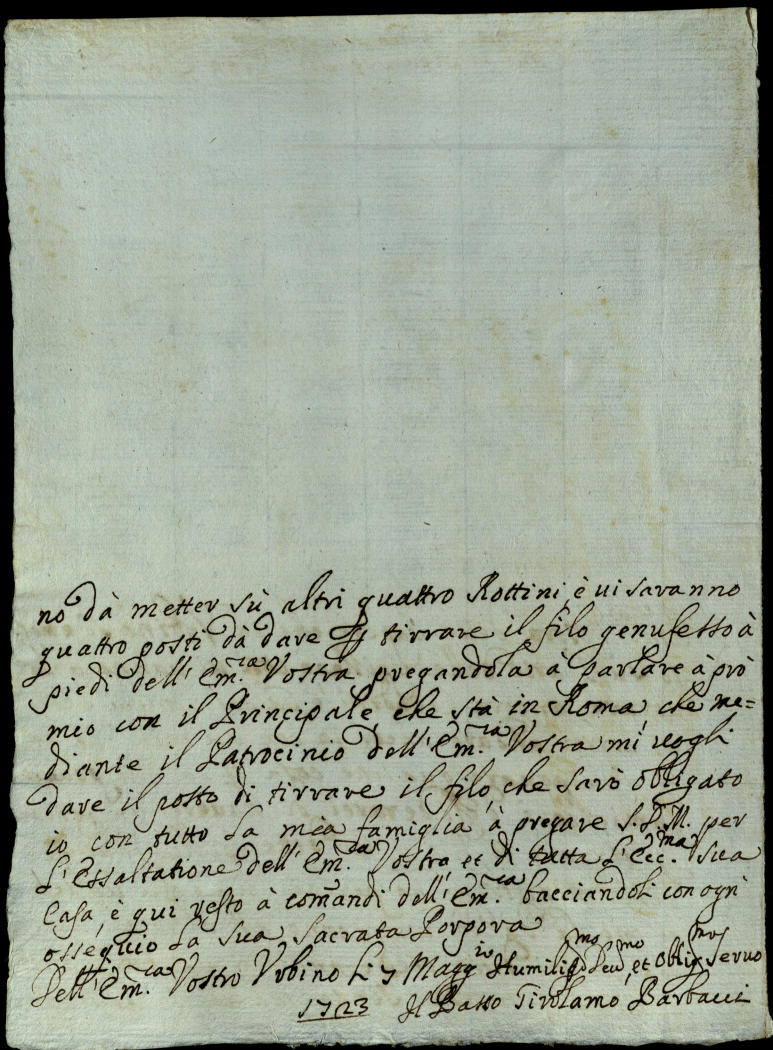 no dà metter sù altri quattro Rottini, è vi saranno
quattro posti dà dare p tirrare il filo genufesso à
piedi dell' Em.za Vostra pregandola à parlare à prò
mio con il Principale, che stà in Roma che me=
diante il Patrocinio dell' Em.za Vostra mi vogli
dare il posto di tirrare il filo, che sarò obligato
io con tutto la mia famiglia à pregare S.D.M. per
L'Essaltatione dell' Em.za Vostra et di tutta L'Ecc.ma sua
Casa, è qui resto à comandi dell' Em.za bacciandoli con ogni
ossequio la sua sacrata Porpora
Dell' Em.za Vostro Urbino Li 7 Magg.io Humiliss.mo Deu.mo et Oblig.mo servo
1723 Il Basso Girolamo Barbacci